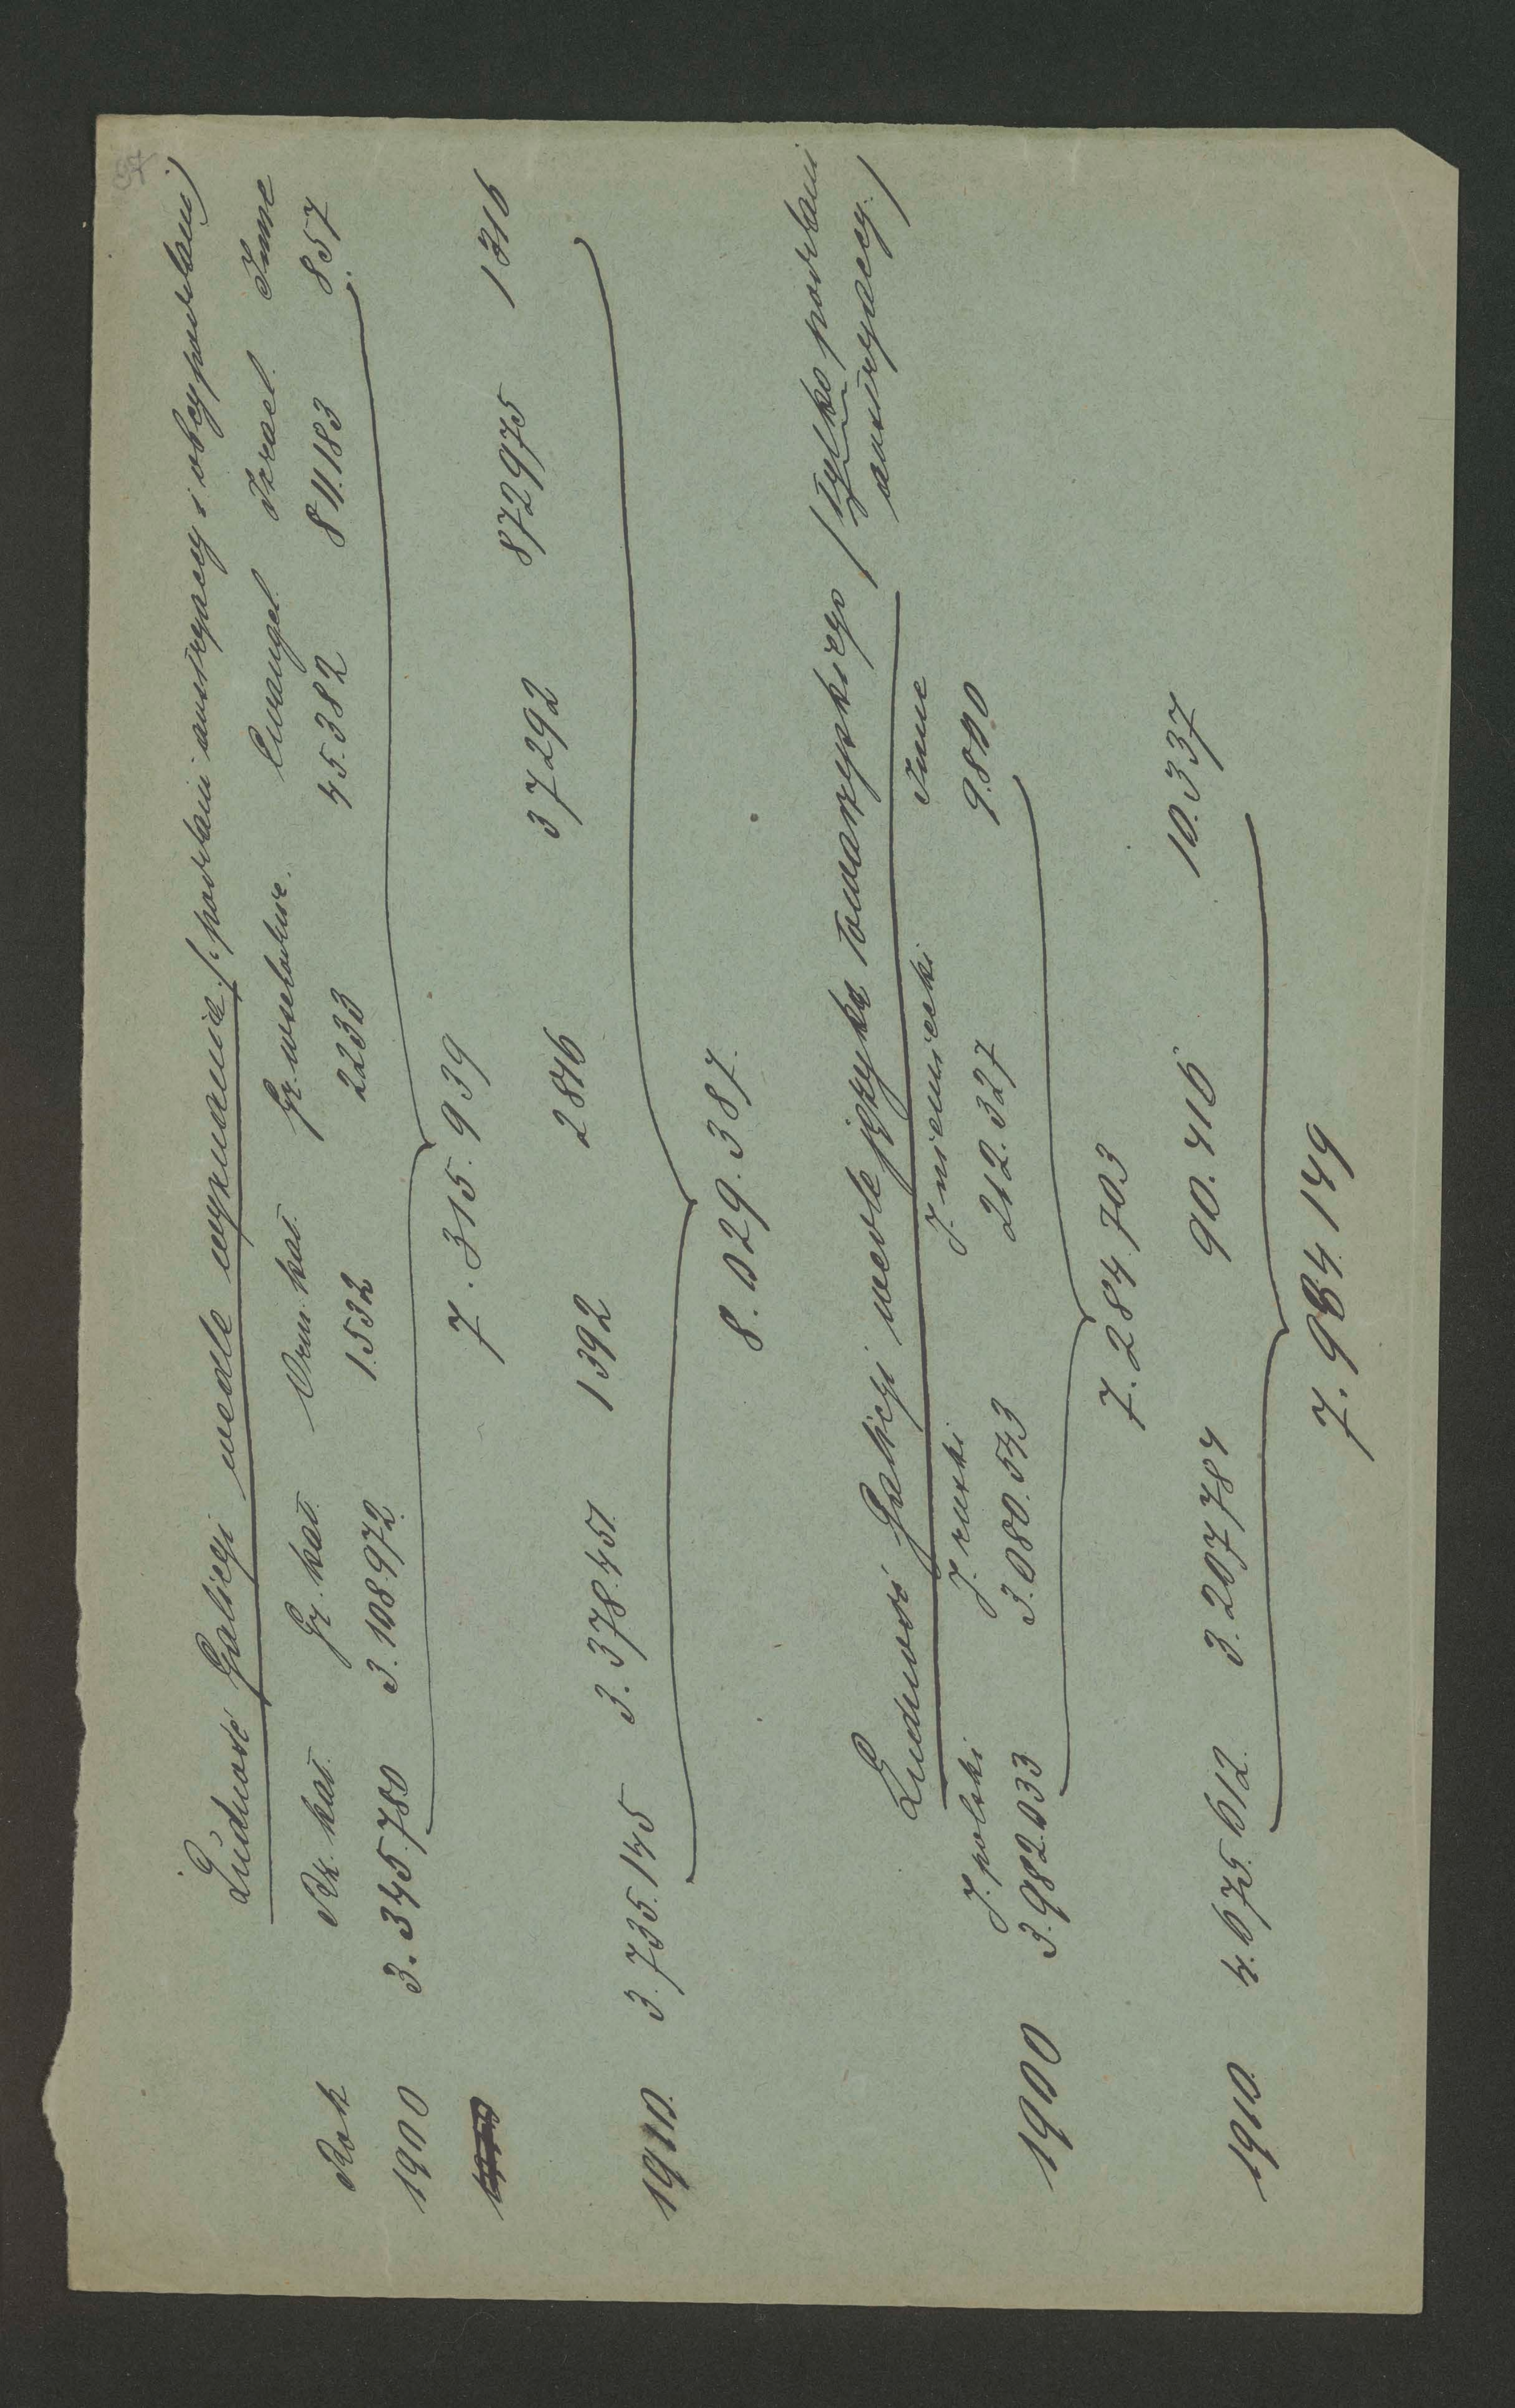 57
Ludność Galicyi wedle wyznania (: poddani austryaccy i obcy poddani)
Rok Rz. kat. Gr. kat. Orm. kat. Gr. wschodnie. Ewangel. Izrael. Inne
1900 3.345.780 3.108.972 1.532 2233 45.382 811.183 857
7.315.939
1910. 3.735.145 3.378.451 1392 2816 37292 872975 1316
8.029.387.
Ludność Galicyi wedle języka towarzyskiego (tylko poddani
austryaccy.)
J. polski J. ruski J. niemiecki Inne
1900 3.982.033 3.080.543 212.327 9.800
7.284.703
1910. 4.675.612. 3.207784 90.416 10.337
7.984.149